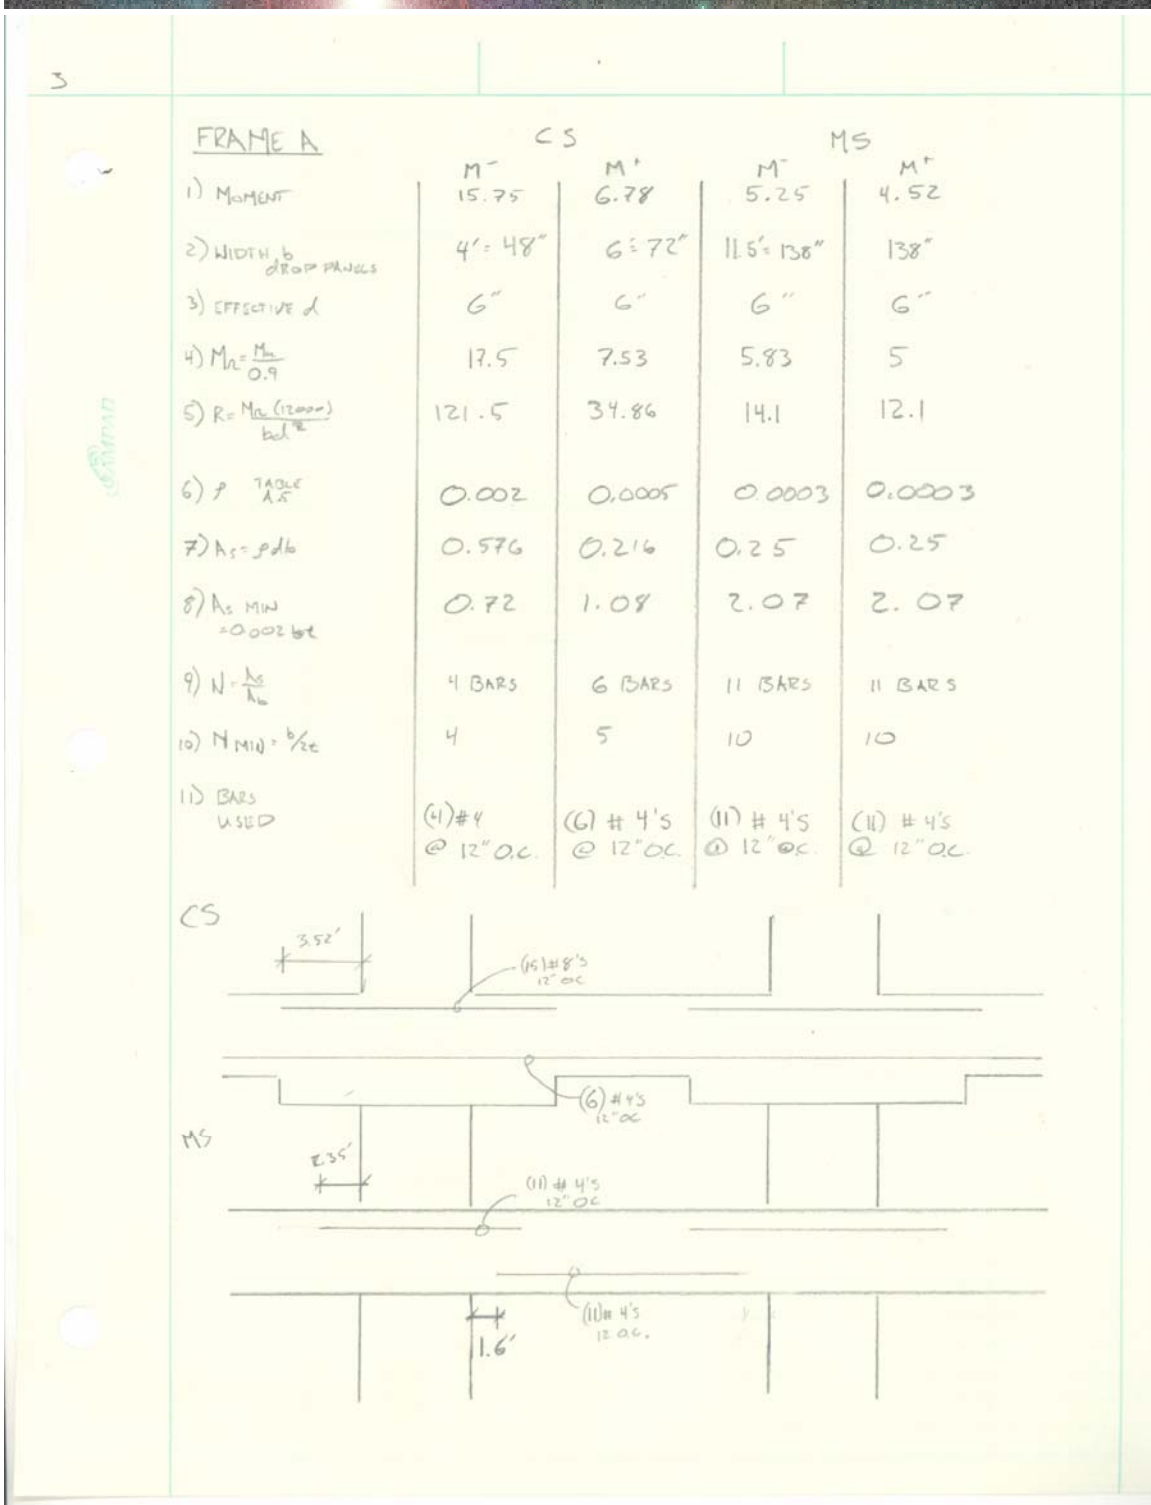 3
FRAME A CS MS
M⁻ M⁺ M⁻ M⁺
1) MOMENT 15.75 6.78 5.25 4.52
2) WIDTH, b 4' = 48" 6 = 72" 11.5' = 138" 138"
DROP PANELS
3) EFFECTIVE d 6" 6" 6" 6"
4) Mn = Mu/0.9 17.5 7.53 5.83 5
5) R = Mn (12000)/bd² 121.5 34.86 14.1 12.1
6) ρ TABLE A5 0.002 0.0005 0.0003 0.0003
7) As = ρdb 0.576 0.216 0.25 0.25
8) As MIN 0.72 1.08 2.07 2.07
=0.002 bt
9) N = As/Ab 4 BARS 6 BARS 11 BARS 11 BARS
10) N MIN = b/2t 4 5 10 10
11) BARS
USED
(4) #4 (6) # 4'S (11) # 4'S (11) # 4'S
@ 12" O.C. @ 12" O.C. @ 12" O.C. @ 12" O.C.
CS
3.52'
(15) #8'S
12" OC
(6) #4'S
12" OC
MS
2.35'
(11) # 4'S
12" OC
(11) # 4'S
12 O.C.
1.6'
AMPAD